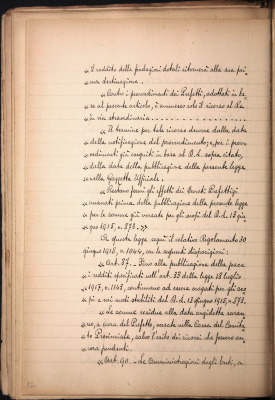 "Il reddito delle fondazioni dotali ritornerà alla sua pri-
"ma destinazione.
"Contro i provvedimenti dei Prefetti, adottati in ba-
"se al presente articolo, è ammesso solo il ricorso al Re
"in via straordinaria
"Il termine per tale ricorso decorre dalla data
"della notificazione del provvedimento; e, per i provv-
"edimenti già eseguiti in base al R. d. sopra citato,
"dalla data della pubblicazione della presente legge
"nella Gazzetta Ufficiale.
"Restano fermi gli effetti dei Decreti Prefettizi
"emanati prima della pubblicazione della presente legge
"per le somme già versate per gli scopi del R. d. 13 giu-
"gno 1918, n. 873."
A questa legge seguì il relativo Regolamento 30
giugno 1918, n. 1044, con le seguenti disposizioni:
"Art. 87. - Fino alla pubblicazione della pace
"i redditi specificati nell'art. 33 della legge 18 luglio
"1917, n. 1143, continuano ad essere erogati per gli sco-
"pi e nei modi stabiliti dal R. d. 13 giugno 1918, n. 873.
"Le somme residue alla data anzidetta saran-
"no, a cura del Prefetto, versate nella Cassa del Comita-
"to Provinciale, salvo l'esito dei ricorsi che fossero an-
"cora pendenti.
"Art. 90. - Le Amministrazioni degli Enti, a